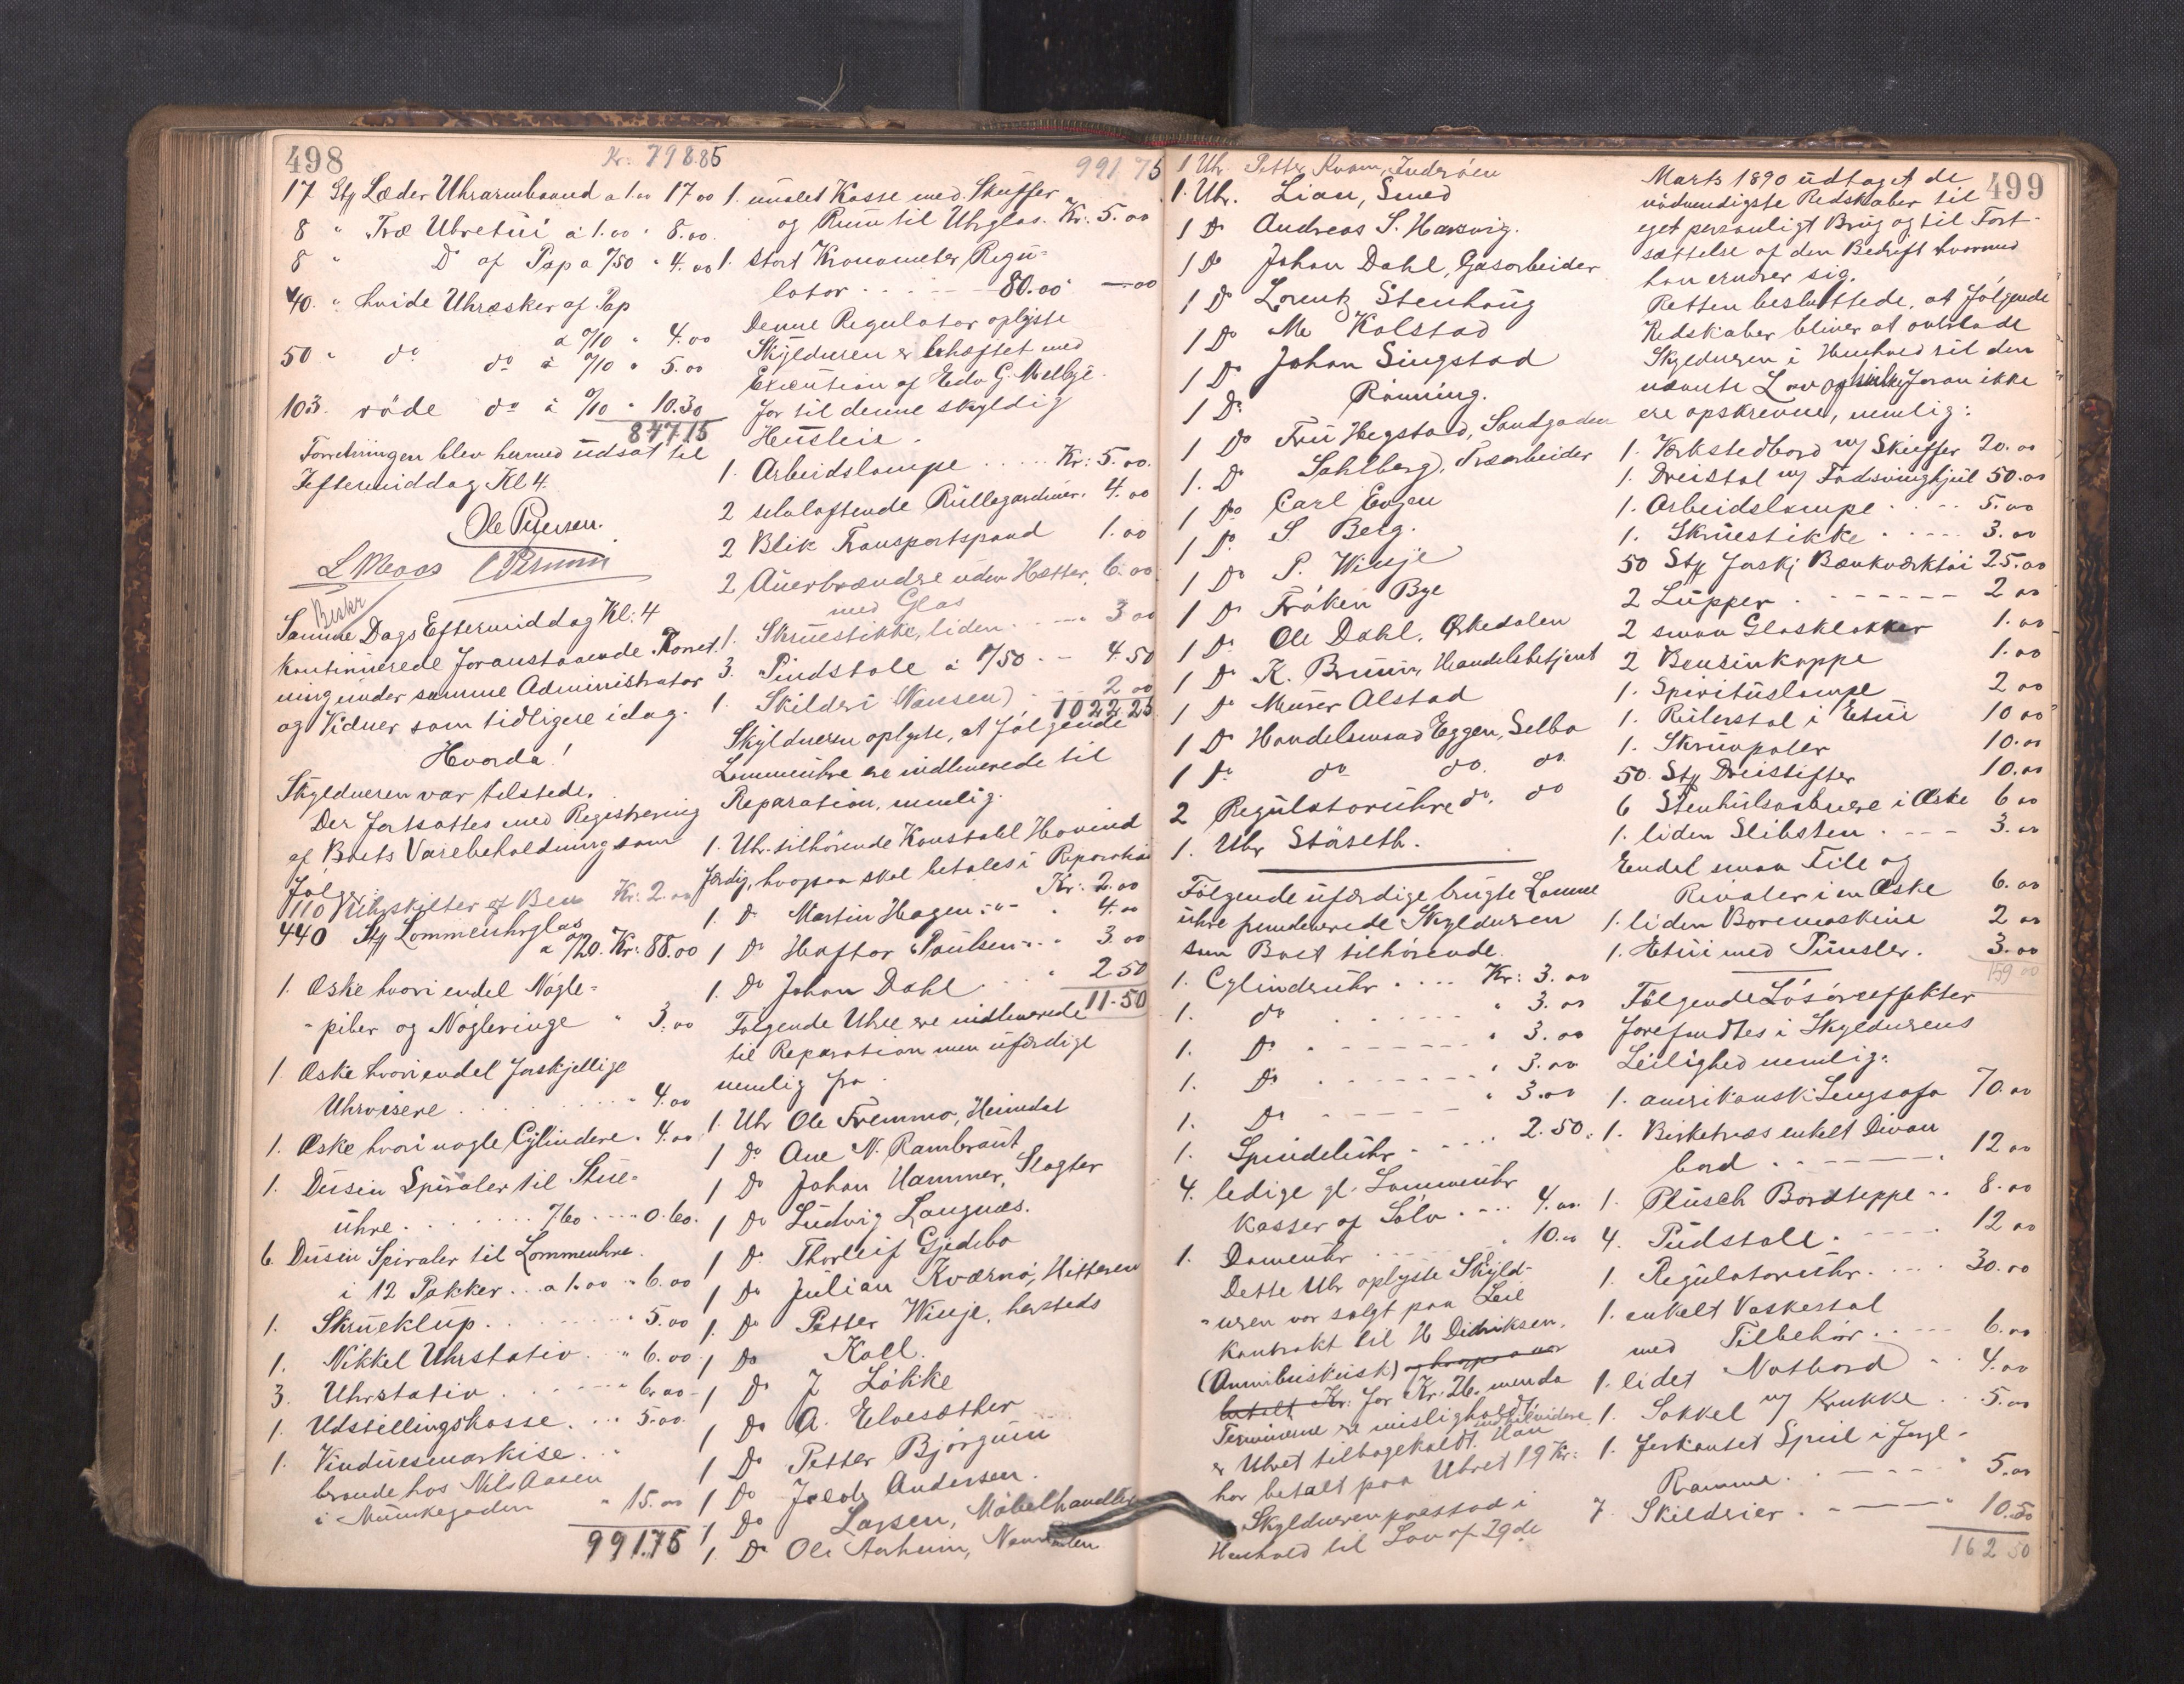 498
Kr. 798.85
17 Stk Læder Uhrarmbaand a 1.00 17 00
8 " Træ Uhretui á 1.00 " 8.00
8 " Do af Pap a %50 " 4.00
40. " hvide Uhræsker af Pap
a %10 " 4.00
50 " do do á %10 " 5.00
103. röde do á %10 " 10.30
847.15
Forretningen blev hermed udsat til
Eftermiddag Kl 4.
Ole Petersen.
L Moos
Beskr
Samme Dags Eftermiddag Kl: 4
kontinuerede foranstaaende Forret.
ning under samme Administrator
og Vidner som tidligere idag.
Hvorda!
Skyldneren var tilstede.
Der fortsattes med Registrering
af Boets Varebeholdning som
fölger:
110 Uhrskilter af Ben Kr: 2.00
440 Stk Lommeuhrglas
a %20. Kr: 88.00
1. Æske hvori endel Nögle-
-piber og Nögleringe " 3.00
1. Æske hvori endel forskjellige
Uhrvisere . . . . " 4.00
1. Æske hvori nogle Cylindere. 4.00
1. Dusin Spiraler til Stue-
uhre . . . . %60 . . 0.60.
6 Dusin Spiraler til Lommeuhre.
i 12 Pakker . . a 1.00 " 6.00
1. Skrueklup . . . . " 5.00
1. Nikkel Uhrstativ . . " 6.00
3. Uhrstativ . . . . 6.00
1. Udstillingskasse . . . 5.00
1. Vinduesmarkise . . "
beroende hos Nils Aasen
i Munkegaden " 15.00
991.75
991 75
1. malet Kasse med Skuffer
og Rum til Uhrglas. Kr: 5.00
1. stort Kronometer Regu-
lator . . . . 80.00
Denne Regulator oplyste
Skyldneren er behæftet med
Execution af Edv G. Melbye
for til denne skyldig
Husleie.
1. Arbeidslampe . . . . Kr: 5.00.
2 selvløftende Rullegardiner. 4.00
2 Blik Transportspand 1.00
2 Auerbrændere uden Hætter. 6.00
med Glas
1. Skruestikke, liden . . . 3 00
3. Pindstole á %50 . . 4.50
1. Skilderi (Nansen) . . 2 00
1022 25
Skyldneren oplyste, at følgende
Lommeuhre ere indleverede til
Reparation, nemlig:
1. Uhr tilhørende Konstabel Hovind
færdig, hvorpaa skal betales i Reparation
Kr: 2.00
1. Do Martin Hagen . " . 4.00
1 Do Haftor Pauken . . . 3.00
1. Do Johan Dahl . . . 2 50
11.50
Følgende Uhre ere indleverede
til Reparation men ufærdige
nemlig fra.
1. Uhr Ole Fremmo, Heimdal
1 Do Ane N. Rambraut
1 Do Johan Hammer, Slagter
1 Do Ludvig Langnæs.
1 Do Thorleif Gjedebo
1 Do Julian Kværnö, Hitteren
1. Do Petter Winje, hersteds
1 Do Koll.
1 Do J Løkke
1 Do A. Elvesæther
1 Do Petter Bjørgum
1 Do Jacob Andersen.
1 Do Larsen, Möbelhandler
1. Do Ole Aarheim, Namdalen
499
1 Uhr Petter Kvam, Inderøen
1. Uhr. Lian, Smed
1 Do Andreas S. Harsvig.
1 Do Johan Dahl, Gasarbeider
1 Do Lorentz Stenhaug
1 Do Me Kolstad
1 Do Johan Singstad
1 Do Rönning.
1 Do Fru Hegstad, Sandgaden
1. Do Sahlberg, Træarbeider
1 Do Carl Evjen
1 Do S Berg.
1 Do P. Winje
1 Do Fröken Bye
1 Do Ole Dahl. Ørkedalen
1 Do K. Bruun, Handelsbetjent
1 Do Murer Alstad
1 Do Handelsmand Eggen, Selbo
1 Do do do. do
2 Regulatoruhre do. do
1. Uhr Stäseth.
Følgende ufærdige brugte Lomme
uhre fremleverede Skyldneren
som Boet tilhørende.
1. Cylinderuhr . . . . Kr: 3.00
1. do . . . . " 3.00
1. Do . . . . " 3.00
1. Do . . . . " 3.00
1. Do . . . . " 3.00
1. Spindeluhr . . . . 2.50.
4. ledige gl. Lommeuhr
kasser af Sølv . . . 4.00.
1. Dameuhr . . . . " 10.00
Dette Uhr oplyste Skyld-
"neren var solgt paa Leie
kontrakt til H Didriksen.
(Omnibuskusk)
betalt Kr: for Kr. 26. men da
Terminerne er misligholdt.
er Uhret tilbagekaldt indtil videre. Han
har betalt paa Uhret 19 Kr:
Skyldneren paastod i
Henhold til Lov af 29de
Marts 1890 udtaget de
nödvendigste Redskaber til
eget personligt Brug og til Fort-
sættelse af den Bedrift hvormed
han ernærer sig.
Retten besluttede, at følgende
Redskaber bliver at overlade
Skyldneren i Henhold til den
nævnte Lov og hvilke foran ikke
ere opskrevne, nemlig:
1. Værkstedbord m/ Skuffer 20.00
1. Dreistol m/ Fodsvinghjul 50.00
1. Arbeidslampe . . . . 5.00
1. Skruestikke . . . . 3.00
50 Stk forskj Bænkværktöi 25.00
2 Lupper . . . . 2 00
2 smaa Glasklokker 1.00
2 Bensinkoppe 1.00
1. Spirituslampe 2 00
1. Rulerstol i Etui 10 00
1. Skrupoler 10.00
50. Stk Dreistifter 10.00
6 Stenhulsaabnere i Æske 6 00
1. liden Slibsten . . . 3.00
Endel smaa File og
Rivaler i en Æske 6.00
1. liden Boremaskine 2 00
1. Etui med Punsler. 3.00
159 00
Følgende Løsøreeffekter
forefandtes i Skyldnerens
Leilighed nemlig:
1. amerikansk Lengsofa 70.00
1. Birketræs enkelt Divan
bord . . . . 12 00
1. Plüsch Bordteppe . . 8.00
4. Pudstole . . . . 12 00
1. Regulatoruhr . . . . 30.00
1. enkelt Vaskestol
med Tilbehør . . . . 6.00
1. lidet Natbord . . 4.00
1. Sokkel m/ Krukke . 5.00
1. firkantet Speil i forgl-
Ramme . . . . " 5.00
7. Skilderier . . . . " 10.50
162 50